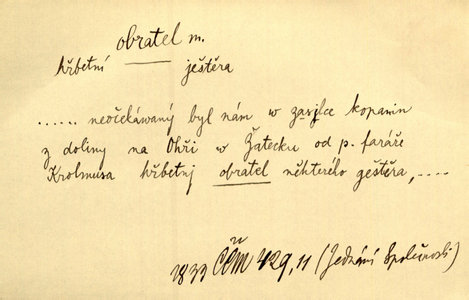 obratel m.
hřbetní ještěra
...... neočekávaný byl nám w zasilce kopanin
z doliny na Ohři w Žatecku od p. faráře
Krolmusa hřbetnj obratel některého geštěra, ....
1833 ČČM 429,11 (Jednání Společnosti)